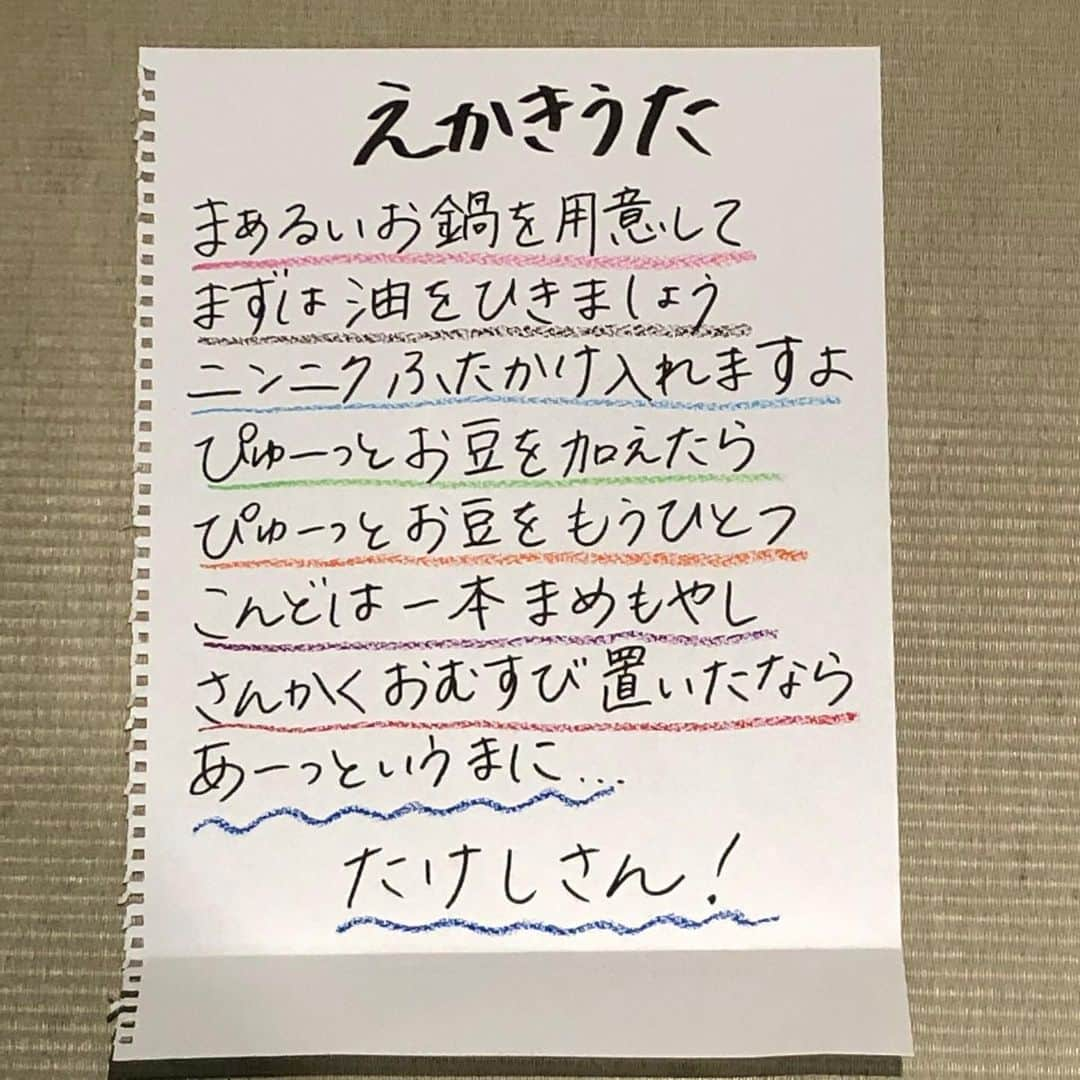 えかきうた
まぁるいお鍋を用意して
まずは油をひきましょう
ニンニクふたかけ入れますよ
ぴゅーっとお豆を加えたら
ぴゅーっとお豆をもうひとつ
こんどは一本まめもやし
さんかくおむすび置いたなら
あーっというまに…
たけしさん!